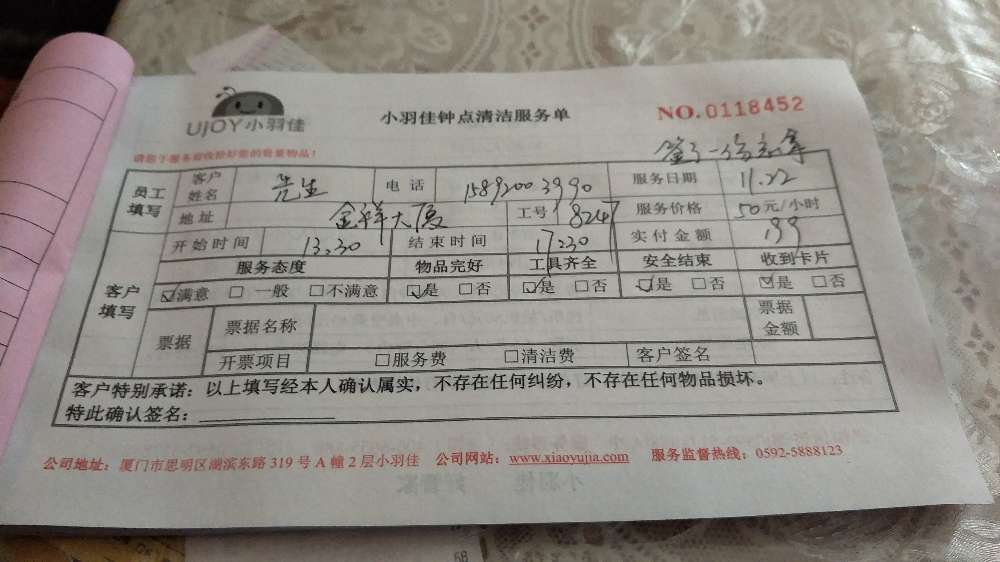 UJOY小羽佳
小羽佳钟点清洁服务单
NO.0118452
请您于服务前收拾好您的贵重物品!
签了一份
员工填写 客户姓名 先生 电话 15892003990 服务日期 11.22
地址 金祥大厦 工号 8247 服务价格 50元/小时
开始时间 13.30 结束时间 17.30 实付金额 199
客户填写 服务态度 物品完好 工具齐全 安全结束 收到卡片
☑满意 □一般 □不满意 ☑是 □否 ☑是 □否 ☑是 □否 ☑是 □否
票据 票据名称 票据金额
开票项目 □服务费 □清洁费 客户签名
客户特别承诺:以上填写经本人确认属实,不存在任何纠纷,不存在任何物品损坏。
特此确认签名:
公司地址:厦门市思明区湖滨东路 319 号 A 幢 2 层小羽佳 公司网站:www.xiaoyujia.com 服务监督热线:0592-5888123
68